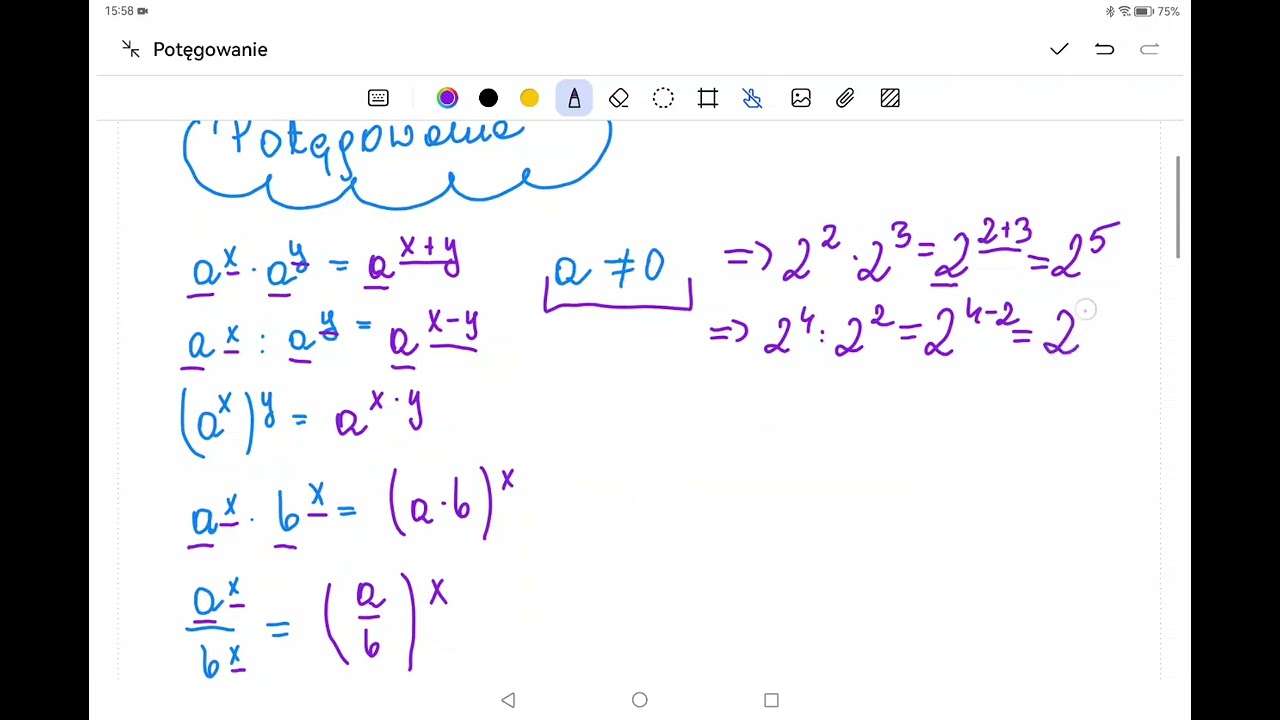 15:58
75%
Potęgowanie
Potęgowanie
a^x · a^y = a^(x+y)
a ≠ 0
=> 2^2 · 2^3 = 2^(2+3) = 2^5
a^x : a^y = a^(x-y)
=> 2^4 : 2^2 = 2^(4-2) = 2
(a^x)^y = a^(x·y)
a^x · b^x = (a·b)^x
a^x/b^x = (a/b)^x